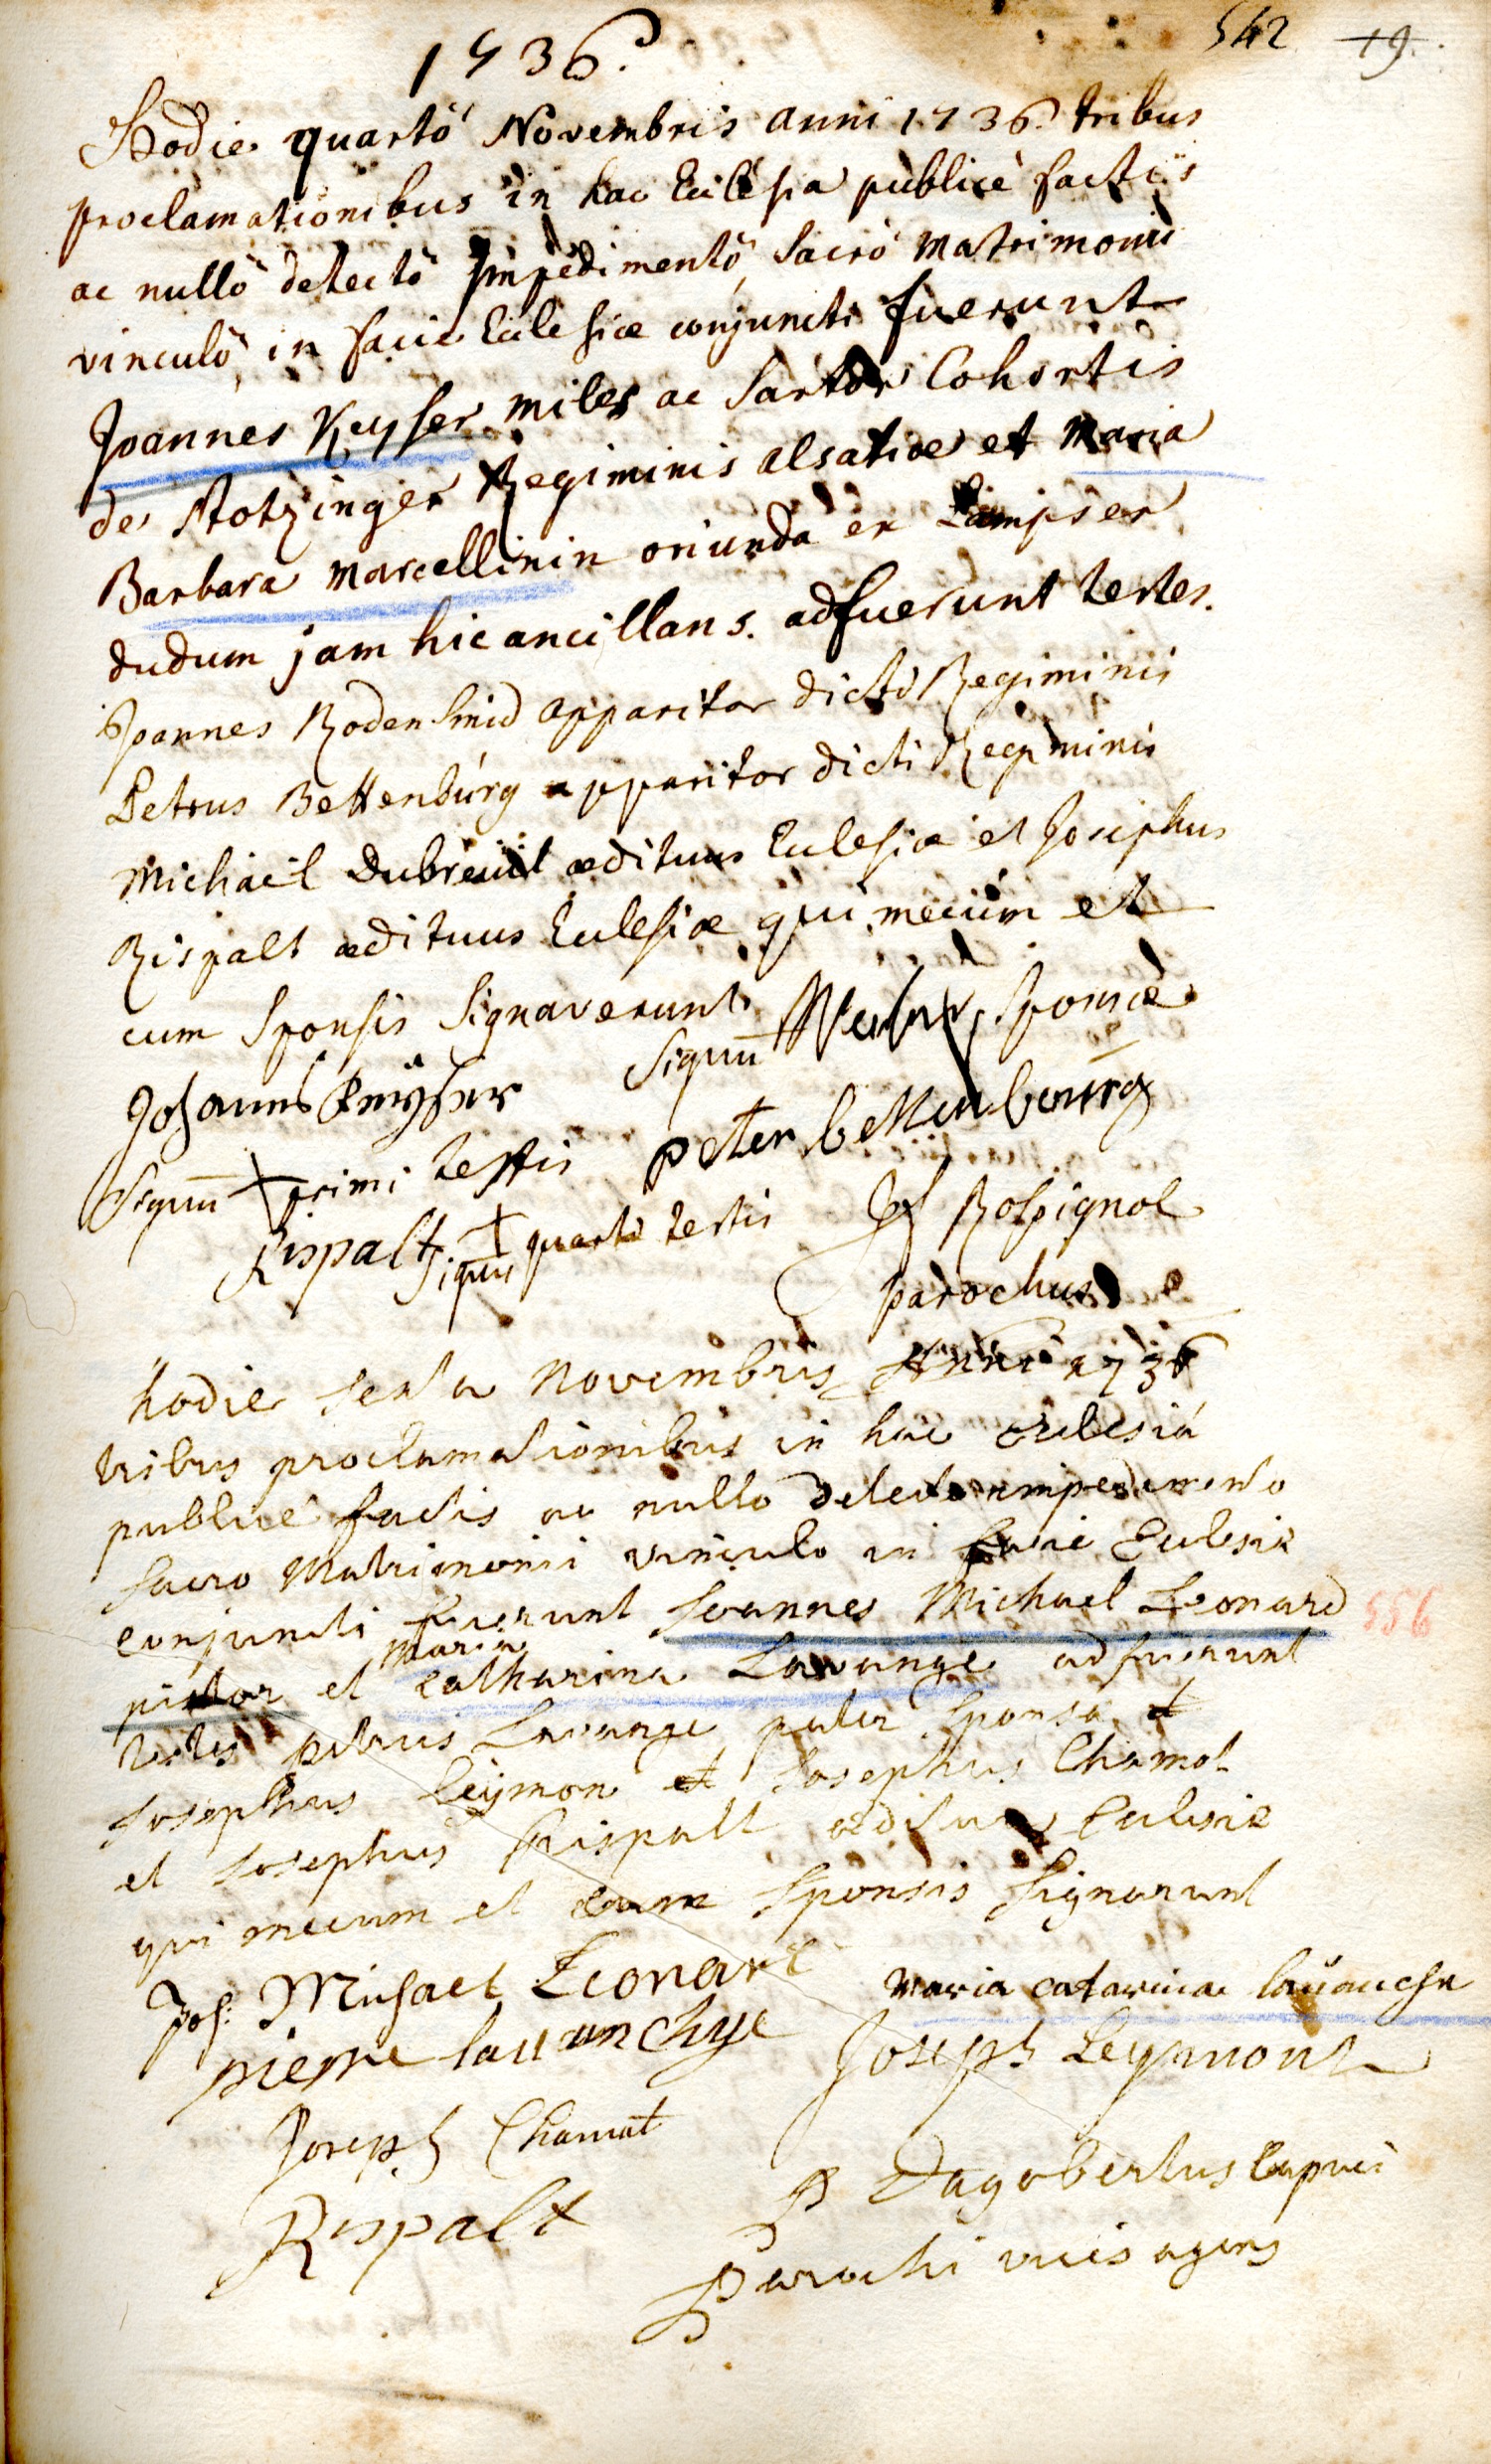 1736.
542 19.
Hodie quartô Novembris anni 1736. tribus
proclamationibus in hac Ecclesia publicè factis
ac nullô detectô impedimentô, sacrô matrimonii
vinculô, in facie Ecclesiæ conjuncti fuerunt
Joannes Keyser miles ac sartor Cohortis
de Stotzinger Regiminis alsatiæ et Maria
Barbara Marcellinin oriunda ex
dudum jam hic ancillans. adfuerunt testes.
Joannes Rodensmid apparitor dicti Regiminis
Petrus Bettenburg apparitor dicti Regiminis
Michaël Dubreuil ædituus Ecclesiæ et Josephus
Rispalt ædituus Ecclesiæ qui mecum et
cum Sponsis Signaverunt
Johannes Keyser Signū sponsæ
Signū + primi testis peter bettenbourg
Rispalt Signū + quarti testis Jf Rossignol
parochus
hodie sexta Novembris Anni 1736
tribus proclamationibus in hac ecclesiâ
publicè factis ac nullo detecto impedimento
sacro Matrimonii vinculo in facie Ecclesiæ
conjuncti fuerunt Joannes Michael Leonard 556
pictor et Maria Catharina Lavange adfuerunt
testes petrus Lavange pater sponsæ et
Josephus Leymon et Josephus Chamot
et Josephus Rispalt ædituus Ecclesiæ
qui mecum et cum sponsis signarunt
Joh: Michael Leonart maria catarina lauanche
pierre lauanchye Joseph Leymont
Joseph Chamat
Rispalt P Dagobertus Capuci
Parochi vices agens